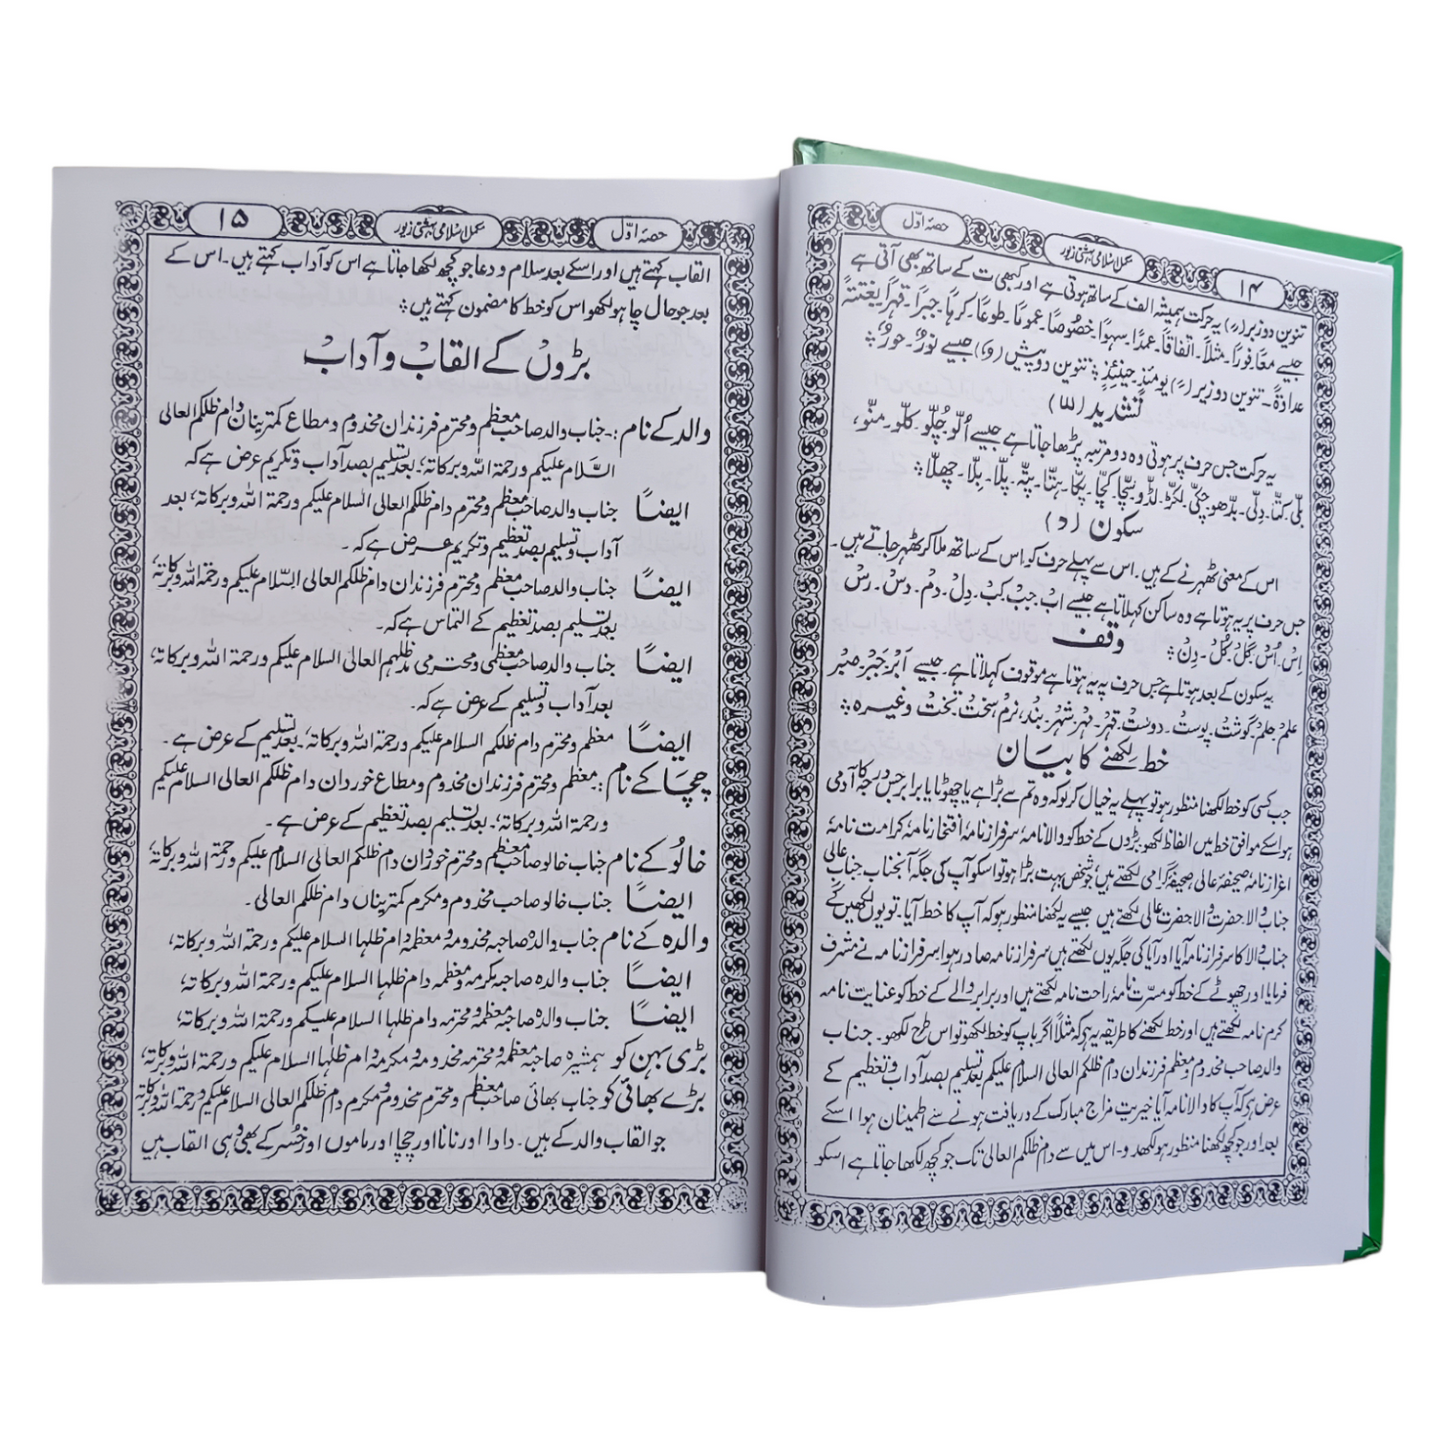 ۱۴
مکمل اسلامی بہشتی زیور
حصہ اوّل
تنوین دو زبر (ـً) یہ حرکت ہمیشہ الف کے ساتھ ہوتی ہے اور کبھی ت کے ساتھ بھی آتی ہے
جیسے معًا۔ فورًا۔ مثلًا۔ اتفاقًا۔ عمدًا۔ سہوًا۔ خصُوصًا۔ عمومًا۔ طوعًا۔ کرہًا۔ جبرًا۔ قہرًا۔
عداوۃً۔ تنوین دو زیر (ـٍ) یومئذٍ۔ حینئذٍ ؞ تنوین دو پیش (ـٌ) جیسے نورٌ۔ حورٌ ؞
تشدید (ـّ)
یہ حرکت جس حرف پر ہوتی وہ دو مرتبہ پڑھا جاتا ہے جیسے اُلّو۔ چُلّو۔ کلّو۔ منّو،
بلّی۔ کتّا۔ دلّی۔ بدّھو۔ چکّی۔ لکڑ۔ لڈّو۔ بچّا۔ کچّا۔ پکّا۔ ہتّا۔ پتّہ۔ پلّا۔ بلّا۔ چھلّا ؞
سکون (ـْ)
اس کے معنی ٹھہرنے کے ہیں۔ اس سے پہلے حرف کو اس کے ساتھ ملا کر ٹھہر جاتے ہیں۔
جس حرف پر یہ ہوتا ہے وہ ساکن کہلاتا ہے جیسے ابْ۔ جبْ۔ کبْ۔ دِلْ۔ دمْ۔ دسْ۔ رسْ
اِسْ۔ اُسْ۔ گلْ۔ گُلْ۔ دِنْ ؞
وقف
یہ سکون کے بعد ہوتا ہے جس حرف پر یہ ہوتا ہے موقوف کہلاتا ہے۔ جیسے ابْر۔ جبْر۔ صبْر
علمْ۔ حلمْ۔ گوشتْ۔ پوستْ۔ دوستْ۔ قہرْ۔ مہرْ۔ شہرْ۔ بندْ، نرمْ سختْ تختْ وغیرہ ؞
خط لِکھنے کا بیان
جب کسی کو خط لکھنا منظور ہو تو پہلے یہ خیال کر لو کہ وہ تم سے بڑا ہے یا چھوٹا یا برابر جس درجہ کا آدمی
ہو اسکے موافق خط میں الفاظ لکھو بڑوں کے خط کو والا نامہ، سرفراز نامہ، افتخار نامہ، کرامت نامہ،
اعزاز نامہ، صحیفہ عالی، صحیفہ گرامی لکھتے ہیں، جو شخص بہت بڑا ہو تو اسکو آپ کی جگہ آنجناب جناب عالی
جناب والا۔ حضرت والا حضرت عالی لکھتے ہیں جیسے یہ لکھنا منظور ہو کہ آپ کا خط آیا۔ تو یوں لکھیں گے
جناب والا کا سرفراز نامہ آیا اور آیا کی جگہ یوں لکھتے ہیں سرفراز نامہ صادر ہوا، سرفراز نامہ نے مشرف
فرمایا اور چھوٹے کے خط کو مسرت نامہ، راحت نامہ لکھتے ہیں اور برابر والے کے خط کو عنایت نامہ
کرم نامہ لکھتے ہیں اور خط لکھنے کا طریقہ یہ ہے کہ مثلًا اگر باپ کو خط لکھو تو اس طرح لکھو۔ جناب
والد صاحب مخدوم و معظم فرزندان دام ظلکم العالی السلام علیکم بعد تسلیم بصد آداب و تعظیم کے
عرض ہے کہ آپ کا والا نامہ آیا خیریت مزاج مبارک کے دریافت ہونے سے اطمینان ہوا اسکے
بعد اور جو کچھ لکھنا منظور ہو لکھدو۔ اس میں سے دام ظلکم العالی تک جو کچھ لکھا جاتا ہے اسکو
حصہ اوّل
مکمل اسلامی بہشتی زیور
۱۵
القاب کہتے ہیں اور اسکے بعد سلام و دعا جو کچھ لکھا جاتا ہے اس کو آداب کہتے ہیں۔ اس کے
بعد جو حال چاہو لکھو اس کو خط کا مضمون کہتے ہیں ؞
بڑوں کے القاب و آداب
والد کے نام :۔ جناب والد صاحب معظم و محترم فرزندان مخدوم و مطاع کمترینان دام ظلکم العالی
السّلام علیکم و رحمۃ اللہ و برکاتہٗ؛ بعد تسلیم بصد آداب و تکریم عرض ہے کہ
ایضًا جناب والد صاحب معظم و محترم دام ظلکم العالی السلام علیکم و رحمۃ اللہ و برکاتہٗ، بعد
آداب و تسلیم بصد تعظیم و تکریم عرض ہے کہ۔
ایضًا جناب والد صاحب معظم و محترم فرزندان دام ظلکم العالی السّلام علیکم و رحمۃ اللہ و برکاتہٗ،
بعد تسلیم بصد تعظیم کے التماس ہے کہ۔
ایضًا جناب والد صاحب معظمی و محترمی مدظلہم العالی السلام علیکم و رحمۃ اللہ و برکاتہٗ،
بعد آداب و تسلیم کے عرض ہے کہ۔
ایضًا معظم و محترم دام ظلکم السلام علیکم و رحمۃ اللہ و برکاتہٗ۔ بعد تسلیم کے عرض ہے۔
چچا کے نام :۔ معظم و محترم فرزندان مخدوم و مطاع خوردان دام ظلکم العالی السلام علیکم
و رحمۃ اللہ و برکاتہٗ؛ بعد تسلیم بصد تعظیم کے عرض ہے۔
خالُو کے نام جناب خالو صاحب معظم و محترم خوردان دام ظلکم العالی السلام علیکم و رحمۃ اللہ و برکاتہٗ؛
ایضًا جناب خالو صاحب مخدوم و مکرم کمترینان دام ظلکم العالی۔
والدہ کے نام جناب والدہ صاحبہ مخدومہ و معظمہ دام ظلہا السلام علیکم و رحمۃ اللہ و برکاتہٗ،
ایضًا جناب والدہ صاحبہ مکرمہ و معظمہ دام ظلہا السلام علیکم و رحمۃ اللہ و برکاتہٗ،
ایضًا جناب والدہ صاحبہ معظمہ و محترمہ دام ظلہا السلام علیکم و رحمۃ اللہ و برکاتہٗ،
بڑی بہن کو ہمشیرہ صاحبہ معظمہ و محترمہ مخدومہ و مکرمہ دام ظلہا السلام علیکم و رحمۃ اللہ و برکاتہٗ،
بڑے بھائی کو جناب بھائی صاحب معظم و محترم مخدوم و مکرم دام ظلکم العالی السلام علیکم و رحمۃ اللہ و برکاتہٗ
جو القاب والد کے ہیں۔ دادا اور نانا اور چچا اور ماموں اور خُسر کے بھی وہی القاب ہیں